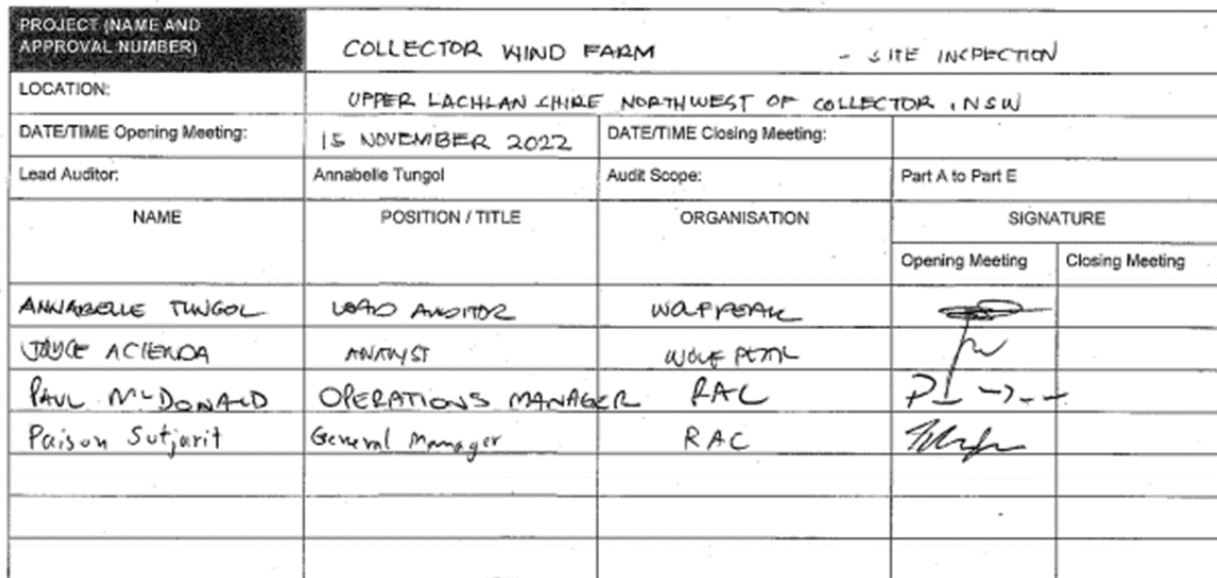 PROJECT (NAME AND
APPROVAL NUMBER)
COLLECTOR WIND FARM - SITE INSPECTION
LOCATION:
UPPER LACHLAN SHIRE NORTHWEST OF COLLECTOR, NSW
DATE/TIME Opening Meeting:
15 NOVEMBER 2022
DATE/TIME Closing Meeting:
Lead Auditor:
Annabelle Tungol
Audit Scope:
Part A to Part E
NAME
POSITION / TITLE
ORGANISATION
SIGNATURE
Opening Meeting
Closing Meeting
ANNABELLE TUNGOL LEAD AUDITOR WOLFPEAK
JOYCE ACIENDA ANALYST WOLFPEAK
PAUL McDONALD OPERATIONS MANAGER RAC
Paison Sutjarit General Manager RAC